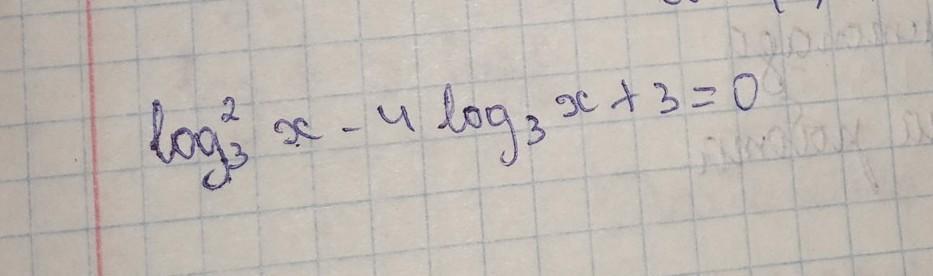 log₃² x - 4 log₃ x + 3 = 0